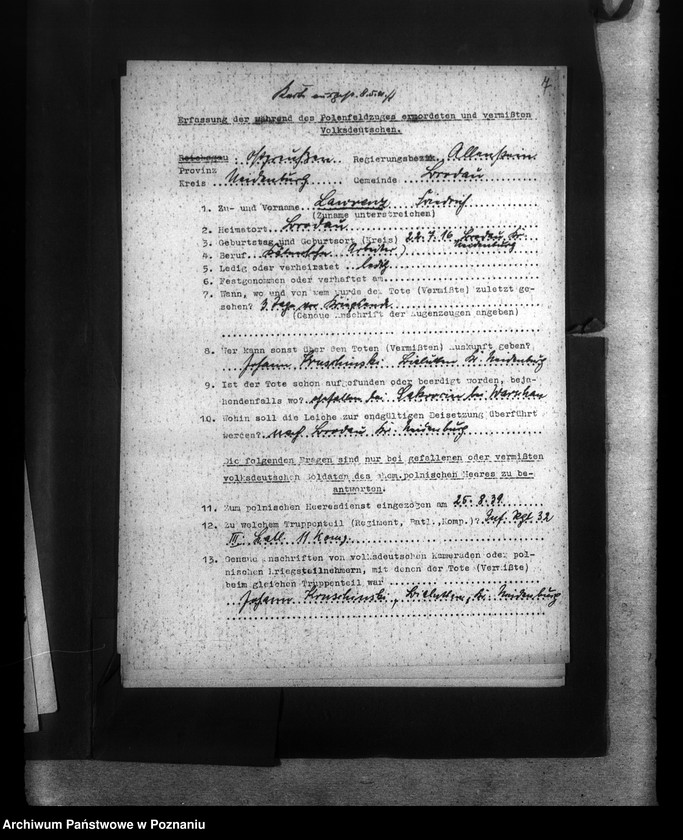 Karte ausgest. 8.5.40
4
Erfassung der während des Polenfeldzuges ermordeten und vermißten
Volksdeutschen.
Reichsgau: Ostpreußen Regierungsbezirk Allenstein
Provinz
Kreis Neidenburg Gemeinde Brodau
1. Zu- und Vorname Lawrenz Friedrich
(Zuname unterstreichen)
2. Heimatort Brodau
3. Geburtstag und Geburtsort (Kreis) 22.7.16 Brodau Kr.
Neidenburg
4. Beruf (Arbeiter)
5. Ledig oder verheiratet ledig
6. Festgenommen oder verhaftet am
7. Wann, wo und von wem wurde der Tote (Vermißte) zuletzt ge-
sehen? 3 Tage vor Kriegsende
(Genaue Anschrift der Augenzeugen angeben)
8. Wer kann sonst über den Toten (Vermißten) Auskunft geben?
Johann Kruschinski Kr. Neidenburg
9. Ist der Tote schon aufgefunden oder beerdigt worden, beja-
hendenfalls wo? gefallen bei bei Warschau
10. Wohin soll die Leiche zur endgültigen Beisetzung überführt
werden? nach Brodau Kr. Neidenburg
Die folgenden Fragen sind nur bei gefallenen oder vermißten
volksdeutschen Soldaten des ehem.polnischen Heeres zu be-
antworten.
11. Zum polnischen Heeresdienst eingezogen am 25.8.39
12. Zu welchem Truppenteil (Regiment, Batl.,Komp.)? Inf. Rgt 32
III. Batl. 11 Komp.
13. Genaue Anschriften von volksdeutschen Kameraden oder pol-
nischen Kriegsteilnehmern, mit denen der Tote (Vermißte)
beim gleichen Truppenteil war
Johann Kruschinski, Kr. Neidenburg
Archiwum Państwowe w Poznaniu